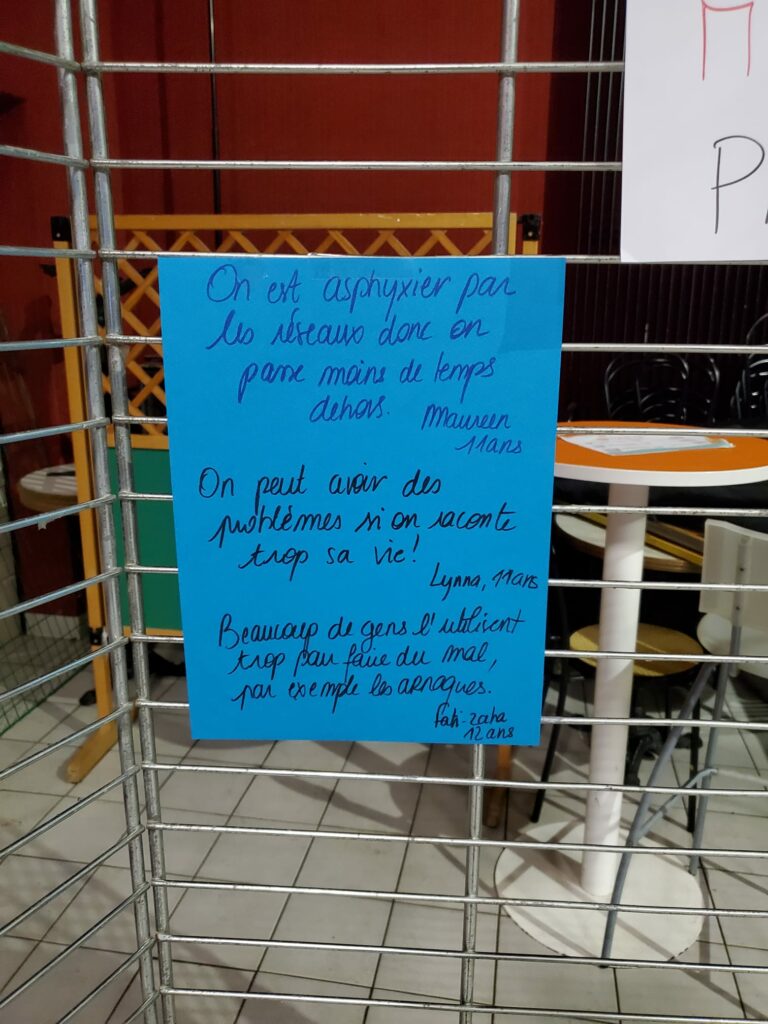 On est asphyxier par
les réseaux donc on
passe moins de temps
dehors.
Maureen
11ans
On peut avoir des
problèmes si on raconte
trop sa vie!
Lynna, 11ans
Beaucoup de gens l'utilisent
trop pour faire du mal,
par exemple les arnaques.
12 ans
P